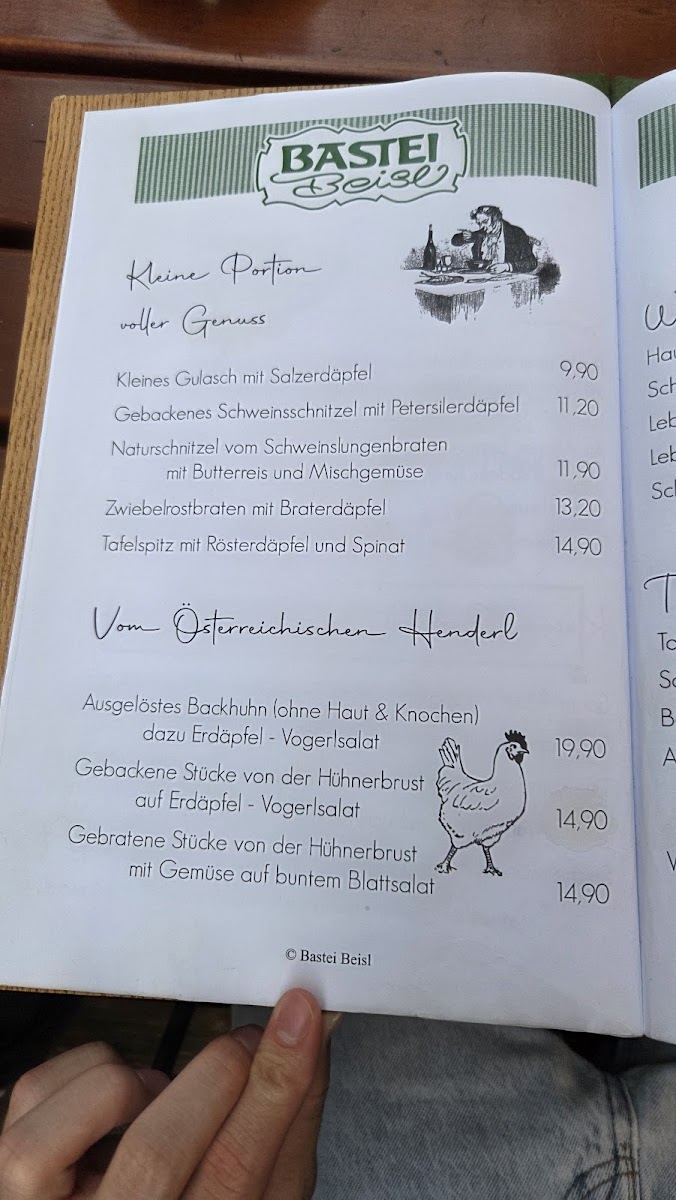 BASTEI
Beisl
Kleine Portion
voller Genuss
Kleines Gulasch mit Salzerdäpfel 9,90
Gebackenes Schweinsschnitzel mit Petersilerdäpfel 11,20
Naturschnitzel vom Schweinslungenbraten
mit Butterreis und Mischgemüse 11,90
Zwiebelrostbraten mit Braterdäpfel 13,20
Tafelspitz mit Rösterdäpfel und Spinat 14,90
Vom Österreichischen Henderl
Ausgelöstes Backhuhn (ohne Haut & Knochen)
dazu Erdäpfel - Vogerlsalat 19,90
Gebackene Stücke von der Hühnerbrust
auf Erdäpfel - Vogerlsalat 14,90
Gebratene Stücke von der Hühnerbrust
mit Gemüse auf buntem Blattsalat 14,90
© Bastei Beisl